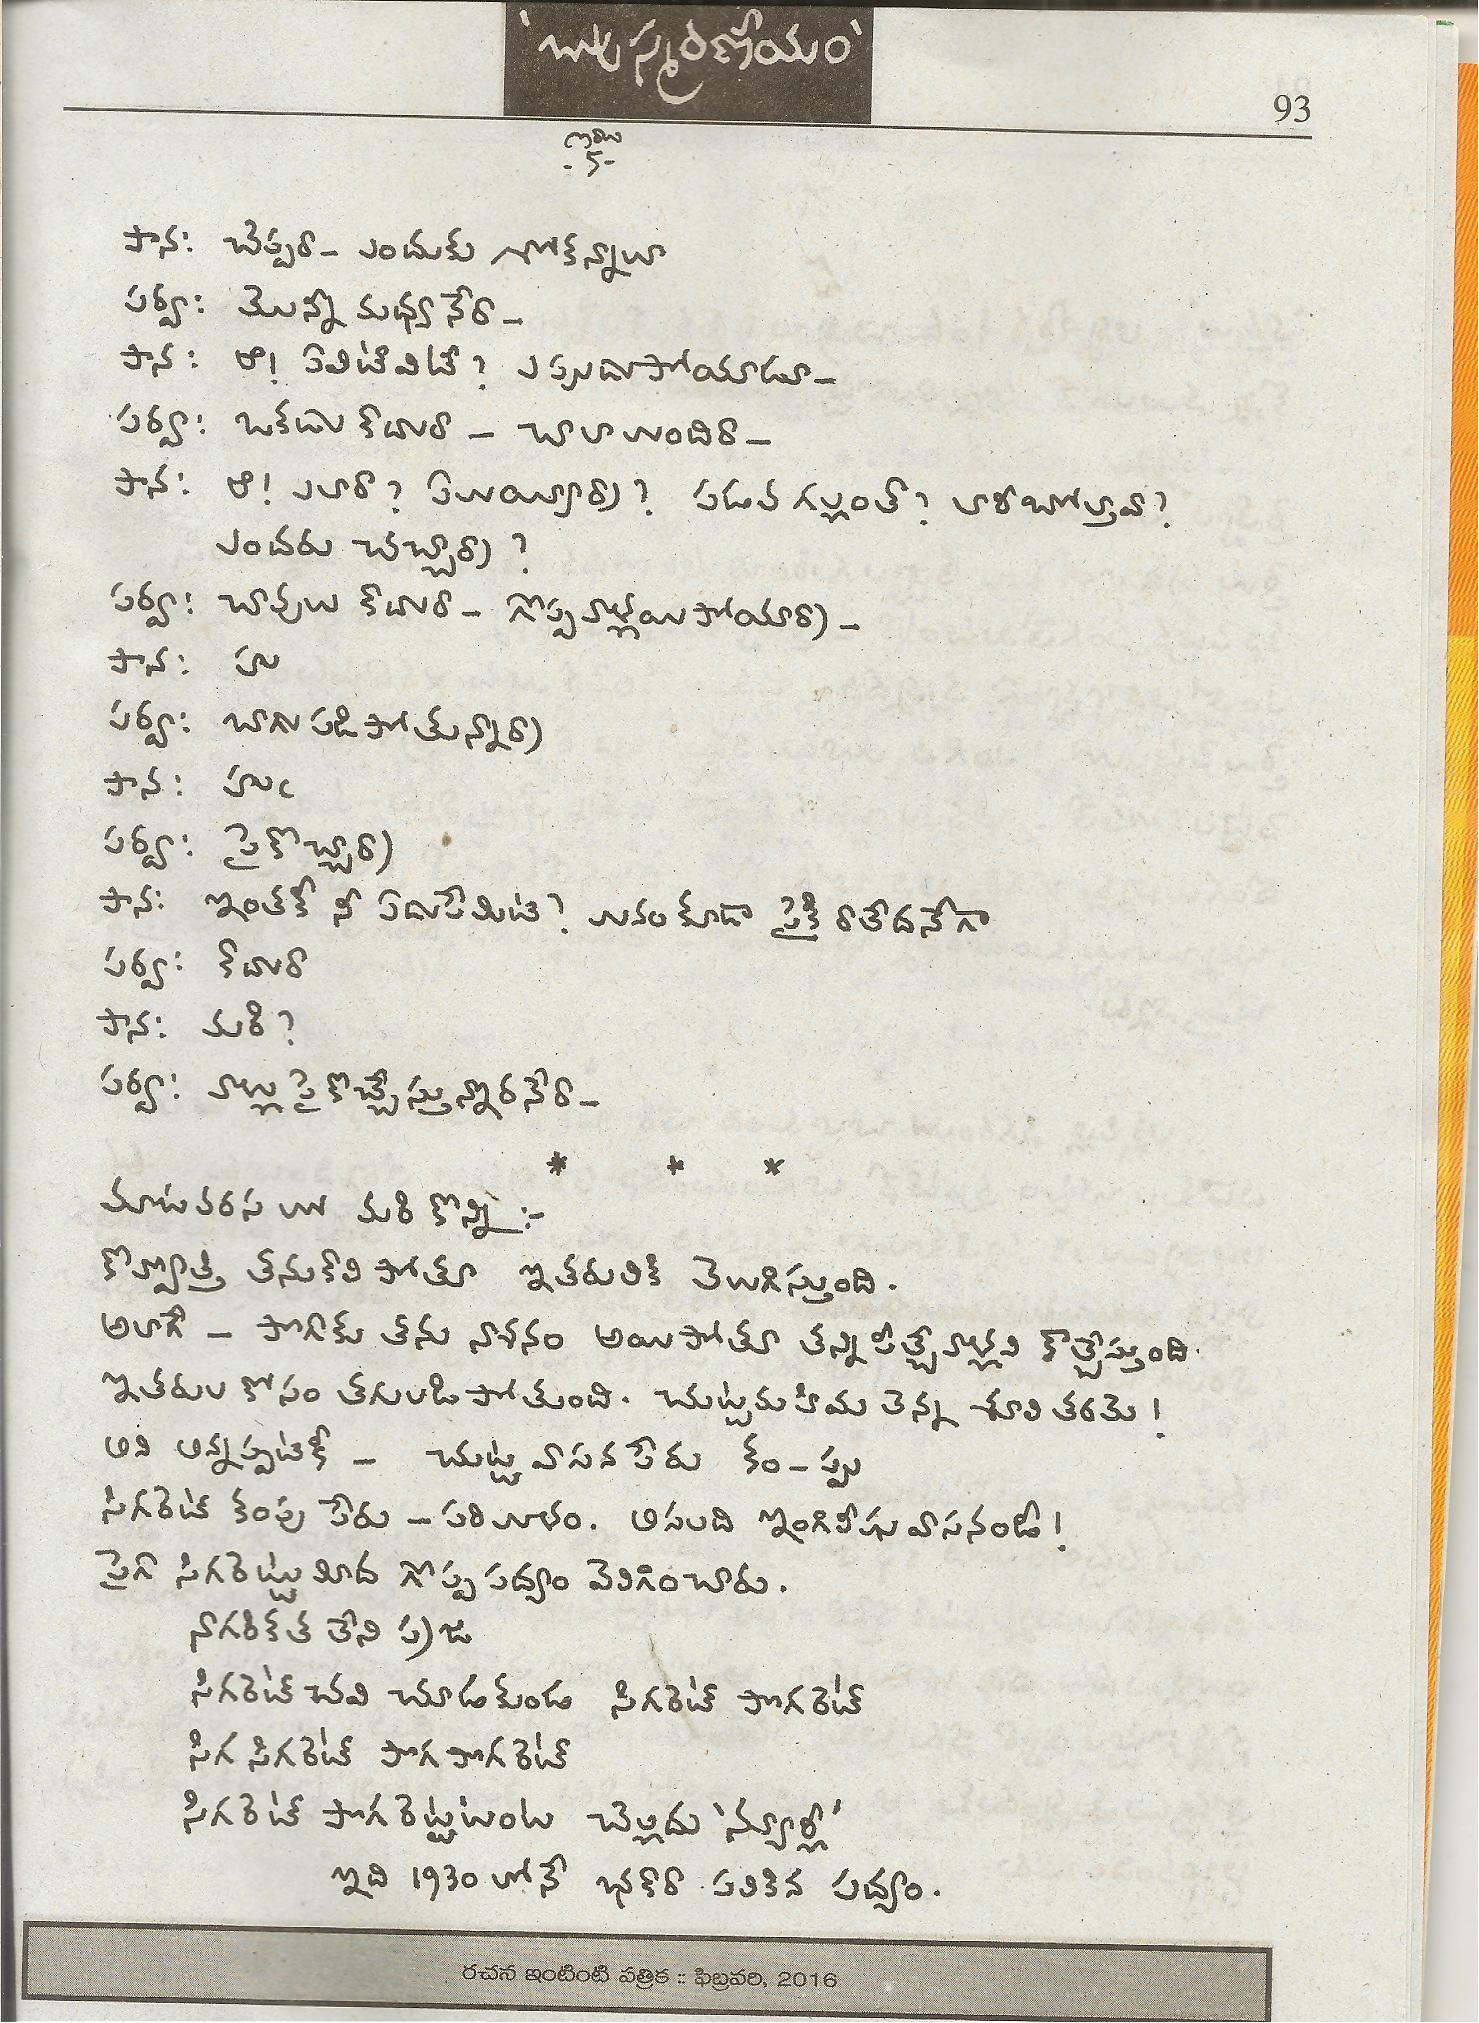 'బాపు స్మరణీయం'
93
-5-
పాన: చెప్పరా - ఎందుకు
పర్వా: మొన్న మధ్యనేరా -
పాన: ఆ! ఏవిటేవిటీ? ఎప్పుడుపోయాడూ -
పర్వా: ఒకడు కాదురా - చాలామందిరా -
పాన: ఆ! ఎలారా? ఏమయ్యార్రా? పడవ గల్లంతా?
ఎందరు చచ్చార్రా?
పర్వా: చావులు కాదురా - గొప్పవాళ్లయిపోయార్రా -
పాన: హు
పర్వా: బాగుపడిపోతున్నార్రా
పాన: హుఁ
పర్వా: పైకొచ్చార్రా
పాన: ఇంతకీ నీ ఏడుపేమిటి? మనం కూడా పైకి రాలేదనేగా
పర్వా: కాదురా
పాన: మరి?
పర్వా: వాళ్లు పైకొచ్చేస్తున్నారనేరా -
* * *
మాటవరసలో మరి కొన్ని :-
కొవ్వొత్తి తనుకాలిపోతూ ఇతరులకి వెలుగిస్తుంది.
అలాగే - పొగాకు తను నాశనం అయిపోతూ తన్ని పీల్చేవాళ్లని కాల్చేస్తుంది.
ఇతరుల కోసం తగులడిపోతుంది. చుట్టమహిమ తెన్న శూలి తరమె!
అని అన్నప్పటికీ - చుట్ట వాసన పేరు కం - ప్పు
సిగరెట్ కంపు పేరు - పరిమళం. అసలది ఇంగిలీషు వాసనండీ!
పైగా సిగరెట్టు మీద గొప్ప పద్యం వెలిగించారు.
నాగరికత లేని ప్రజ
సిగరెట్ చవి చూడకుండ సిగరెట్ పొగరెట్
సిగ సిగరెట్ పొగ పొగరెట్
సిగరెట్ పొగరెట్టటంట చెల్లదు 'న్యూళ్లా'
ఇది 1930 లోనే భకారా పలికిన పద్యం.
రచన ఇంటింటి పత్రిక :: ఫిబ్రవరి, 2016